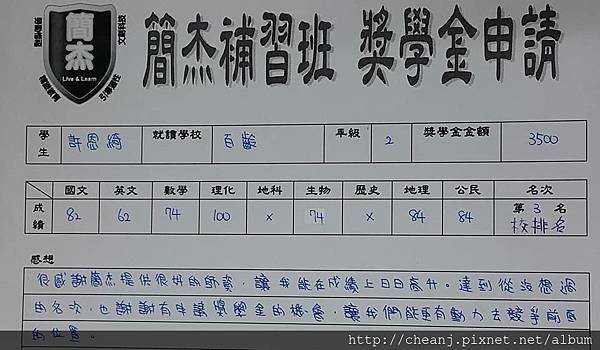 簡杰
Live & Learn
簡杰補習班 獎學金申請
學生 許恩綺 就讀學校 百齡 年級 2 獎學金金額 3500
國文 英文 數學 理化 地科 生物 歷史 地理 公民 名次
成績 82 62 74 100 x 74 x 84 84 第 3 名 校排名
感想
很感謝簡杰提供很好的師資，讓我能在成績上日日高升。達到從沒想過
的名次，也謝謝有申請獎學金的機會，讓我們能更有動力去競爭前面
的位置。
http://cheanj.pixnet.net/album